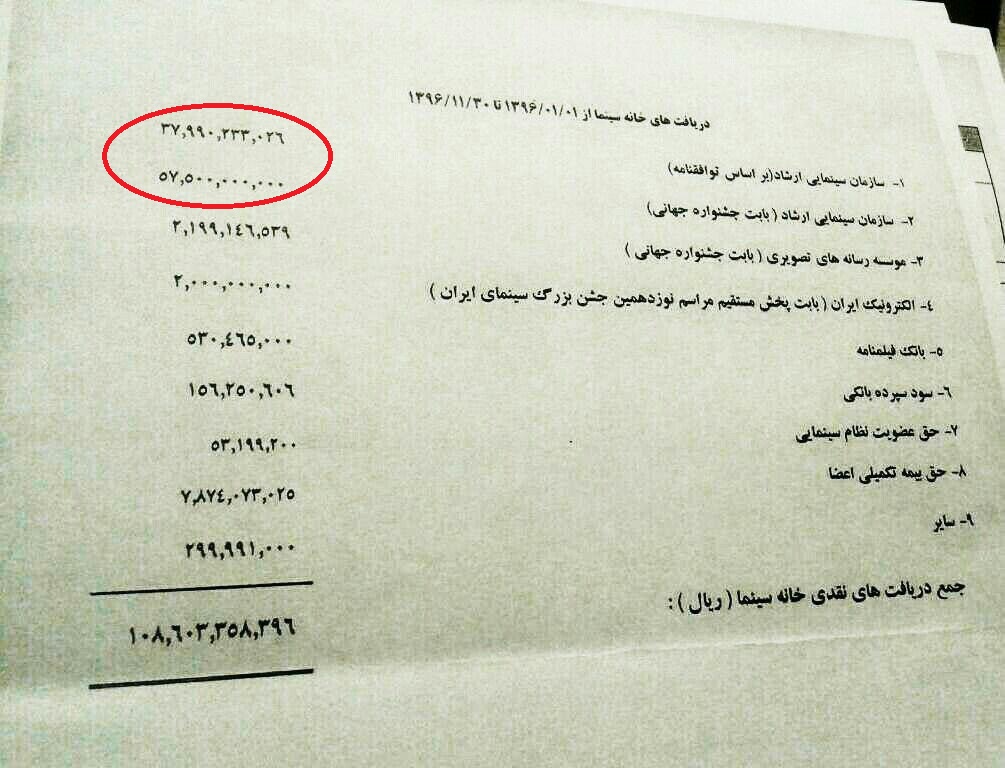 دریافت های خانه سینما از ۱۳۹۶/۰۱/۰۱ تا ۱۳۹۶/۱۱/۳۰
۱- سازمان سینمایی ارشاد(بر اساس توافقنامه) ۳۷,۹۹۰,۲۳۳,۰۲٦
۲- سازمان سینمایی ارشاد ( بابت جشنواره جهانی) ۵۷,۵۰۰,۰۰۰,۰۰۰
۳- موسسه رسانه های تصویری ( بابت جشنواره جهانی ) ۲,۱۹۹,۱٤٦,۵۳۹
٤- الکترونیک ایران ( بابت پخش مستقیم مراسم نوزدهمین جشن بزرگ سینمای ایران ) ۲,۰۰۰,۰۰۰,۰۰۰
۵- بانک فیلمنامه ۵۳۰,٤٦۵,۰۰۰
٦- سود سپرده بانکی ۱۵٦,۲۵۰,٦۰٦
۷- حق عضویت نظام سینمایی ۵۳,۱۹۹,۲۰۰
۸- حق بیمه تکمیلی اعضا ۷,۸۷٤,۰۷۳,۰۲۵
۹- سایر ۲۹۹,۹۹۱,۰۰۰
جمع دریافت های نقدی خانه سینما ( ریال ) : ۱۰۸,٦۰۳,۳۵۸,۳۹٦